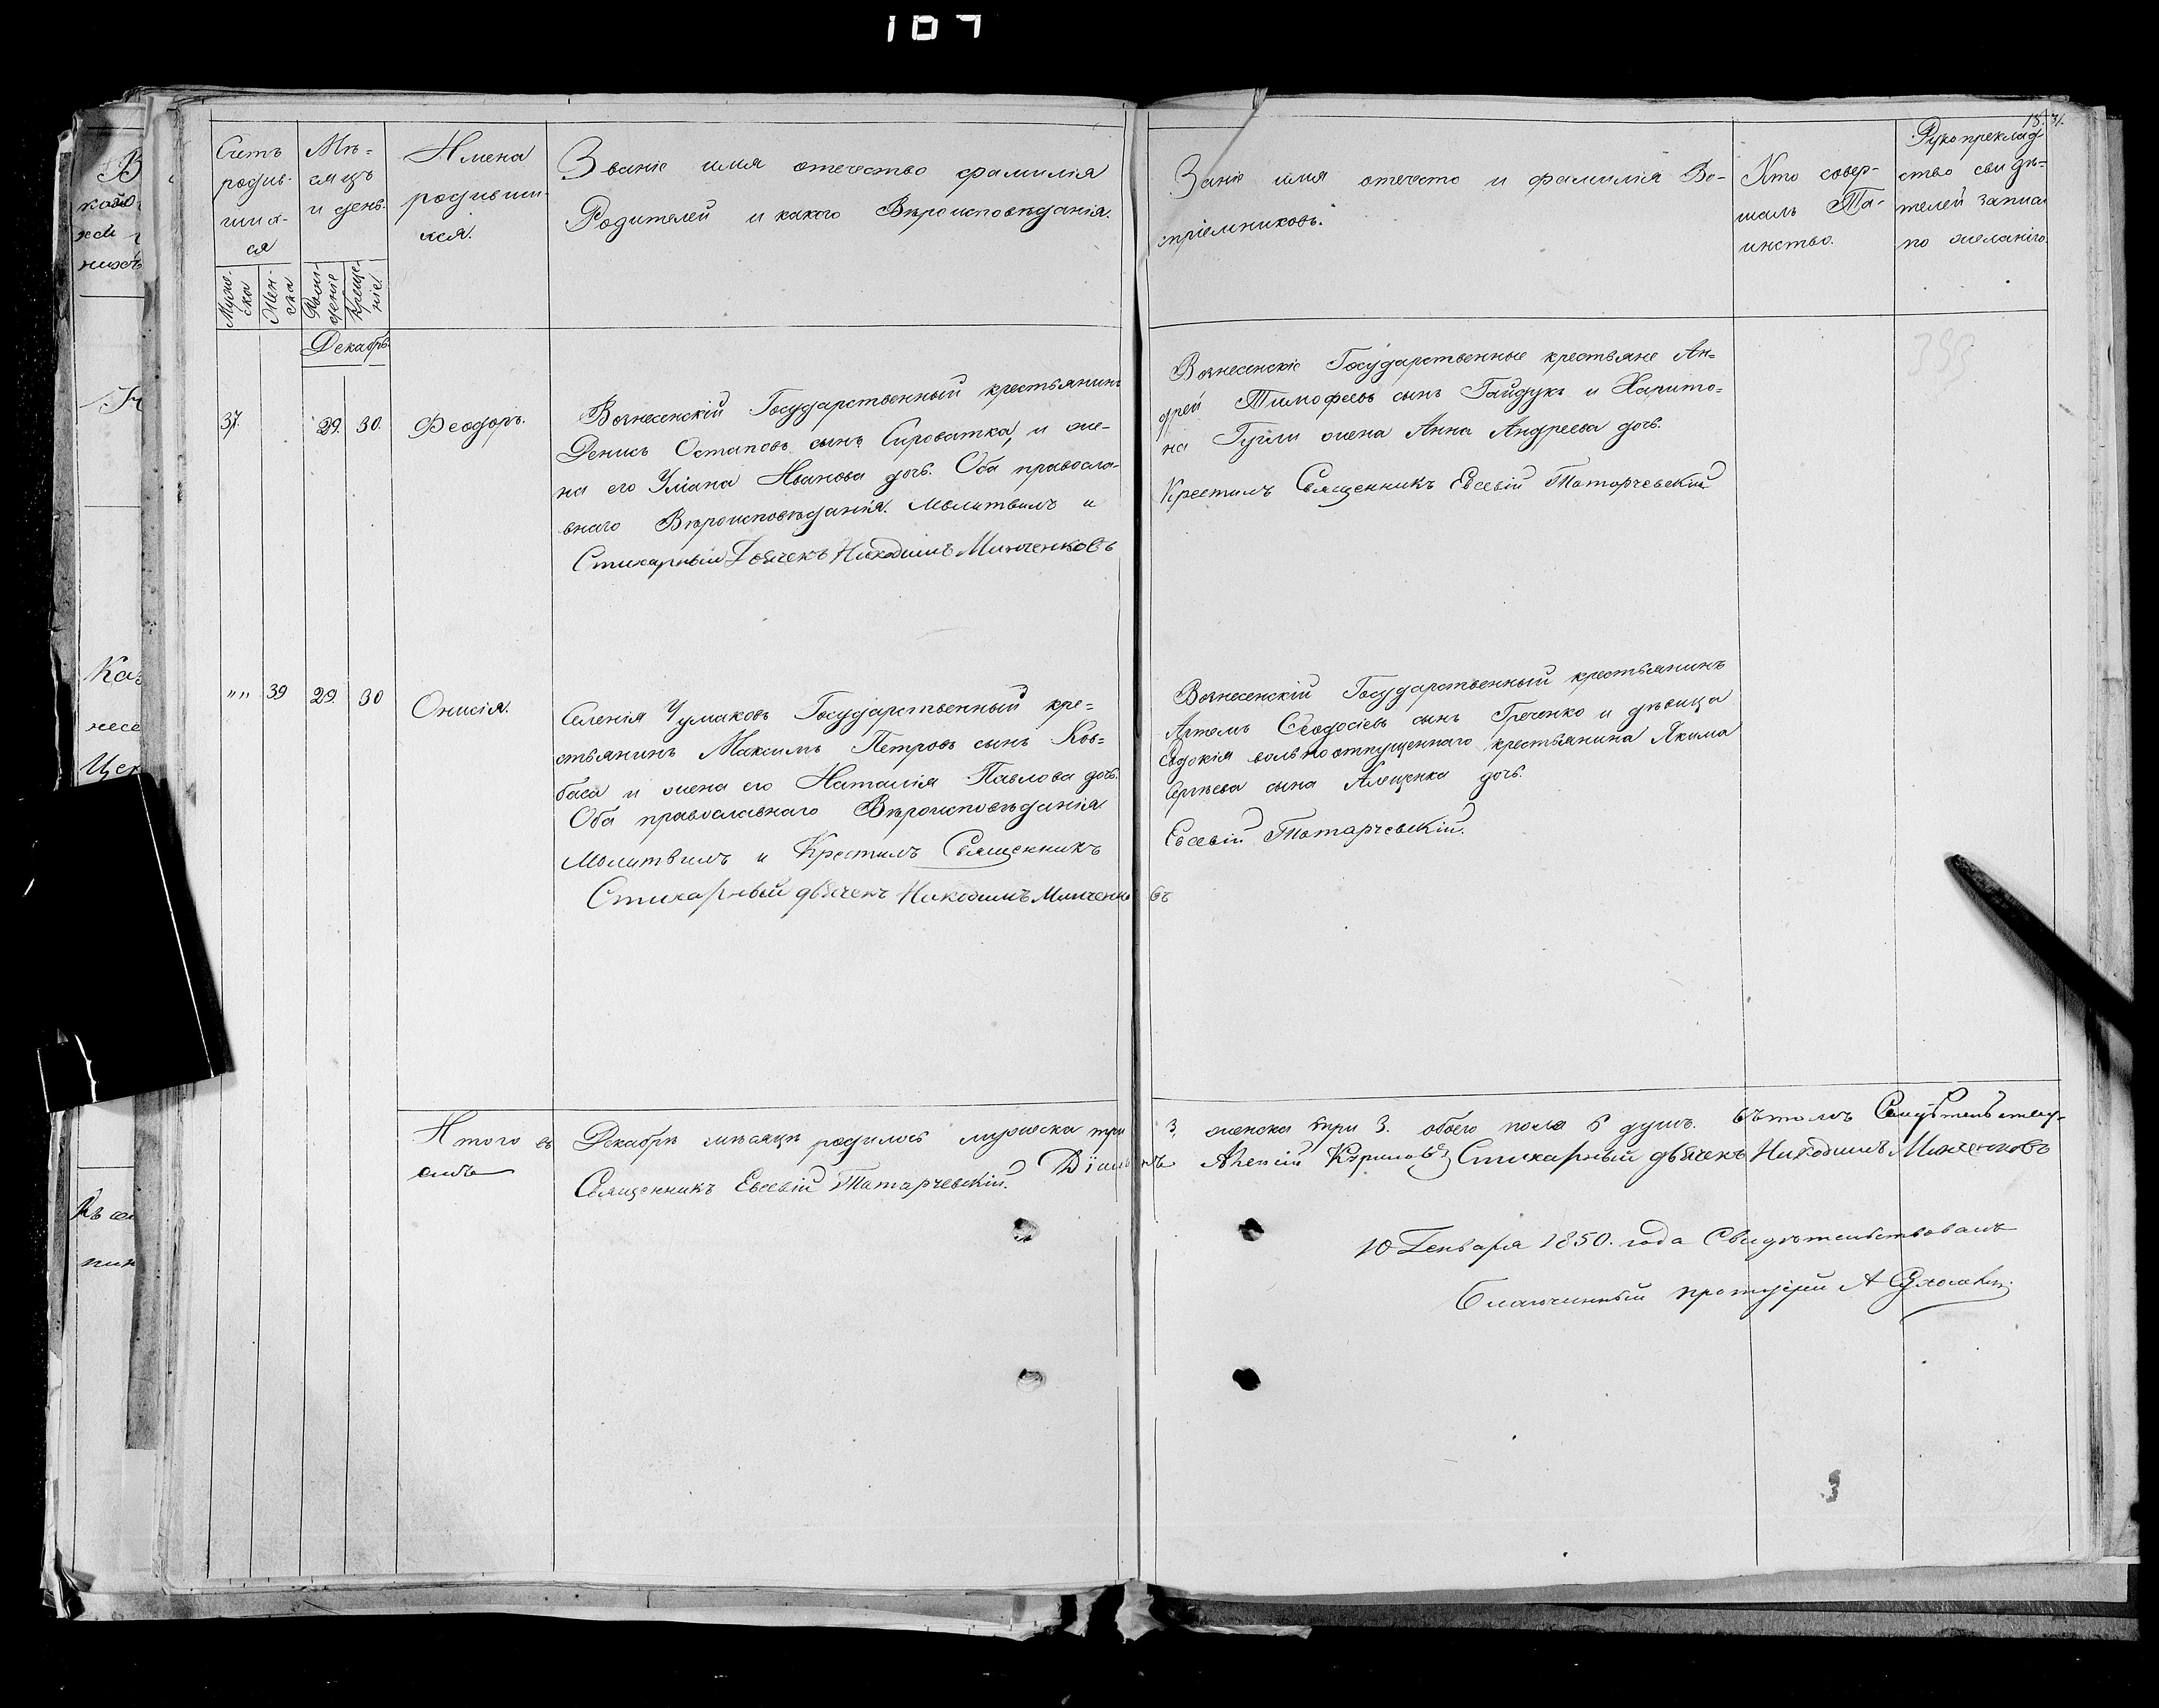 107
Счетъ
родив-
шихся-
ся
Мѣ-
сяцъ
и день.
Имена
родивши-
хся.
Званіе имя отечество фамилія
Родителей и какого Вѣроисповѣданія.
Мужс-
ска
Жен-
ска
Рож-
деніе
Креще-
ніе
Заніе имя отечесто и фамилія Во-
спріемниковъ.
Кто совер-
шалъ Та-
инство.
18. 31.
Рукопреклад
ство свидѣ-
телей записа
по желанію.
Декабрь
37.
29. 30.
Феодоръ.
Вознесенскій Государственный крестьянинъ
Денисъ Остаповъ сынъ Сироватка, и же-
на его Уліана Иванова дочь. Оба правосла-
внаго Вѣроисповѣданія. Молитвилъ и
Стихарный Дьячекъ Никодимъ Минченковъ
Вознесенскіе Государственные крестьяне Ан-
дрей Тимофеевъ сынъ Гайдукъ и Харито-
на жена Анна Андреева дочь.
Крестилъ Священникъ Евсевій Татарчевскій
"" 39 29. 30
Онисія.
Селенія Чумаковъ Государственный кре-
стьянинъ Максимъ Петровъ сынъ Ков-
баса и жена его Наталія Павлова дочь.
Оба православнаго Вѣроисповѣданія.
Молитвилъ и Крестилъ Священникъ
Стихарный дьячекъ Никодимъ Минченковъ
Вознесенскій Государственный крестьянинъ
Артемъ Феодосіевъ сынъ Греченко и дѣвица
Евдокія вольноотпущеннаго крестьянина Якима
Сергѣева сына Алещенка дочь.
Евсевій Татарчевскій.
Итого въ Декабрѣ мѣсяцѣ родилось мужска три 3, женска три 3. обоего пола 6 душъ. вътомъ Свидѣтельству-
емъ
Священникъ Евсевій Татарчевскій. Діаконъ Стихарный дьячекъ Никодимъ Минченковъ
10 Генваря 1850. года Свидѣтельствовалъ
Благочинный протоіерей А